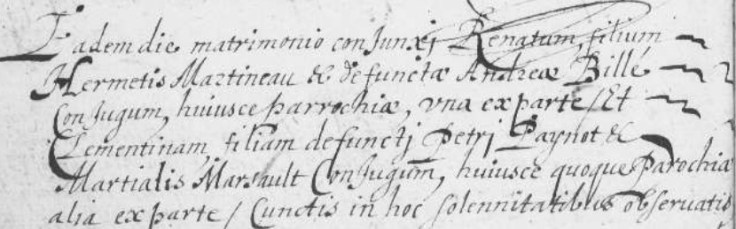 Eadem die matrimonio conJunxj Renatum, filium
Hermetis Martineau & defunctæ Andreæ Billé
ConJugum, huiusce parrochiæ, vna ex parte / Et
Clementinam, filiam defunctj Petrj Paynot &
Martialis Marsault ConJugum, huiusce quoque Parochiæ
alia ex parte / Cunctis in hoc solennitatibus obseruatis